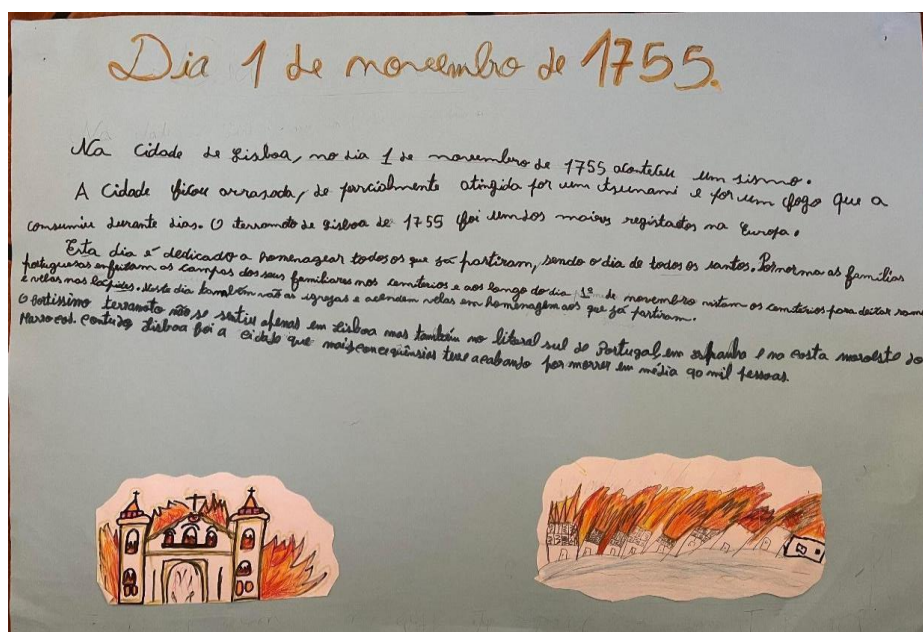 Dia 1 de novembro de 1755.
Na cidade de Lisboa, no dia 1 de novembro de 1755 aconteceu um sismo.
A cidade ficou arrasada, de parcialmente atingida por um tsunami e por um fogo que a
consumiu durante dias. O terramoto de Lisboa de 1755 foi um dos maiores registados na Europa.
Esta dia é dedicado a homenagear todos os que já partiram, sendo o dia de todos os santos. Por norma as famílias
portuguesas enfeitam as campas dos seus familiares nos cemitérios e aos longo do dia 1º de novembro visitam os cemitérios para deitar ramos
e velas nas lápides. Neste dia também vão as igrejas e acendem velas em homenagem aos que já partiram.
O fortissimo terramoto não se sentiu apenas em Lisboa mas também no litoral sul de Portugal em espanha e na costa noroeste do
Marrocos. Contudo Lisboa foi a cidade que mais teve acabando por morrer em média 90 mil pessoas.